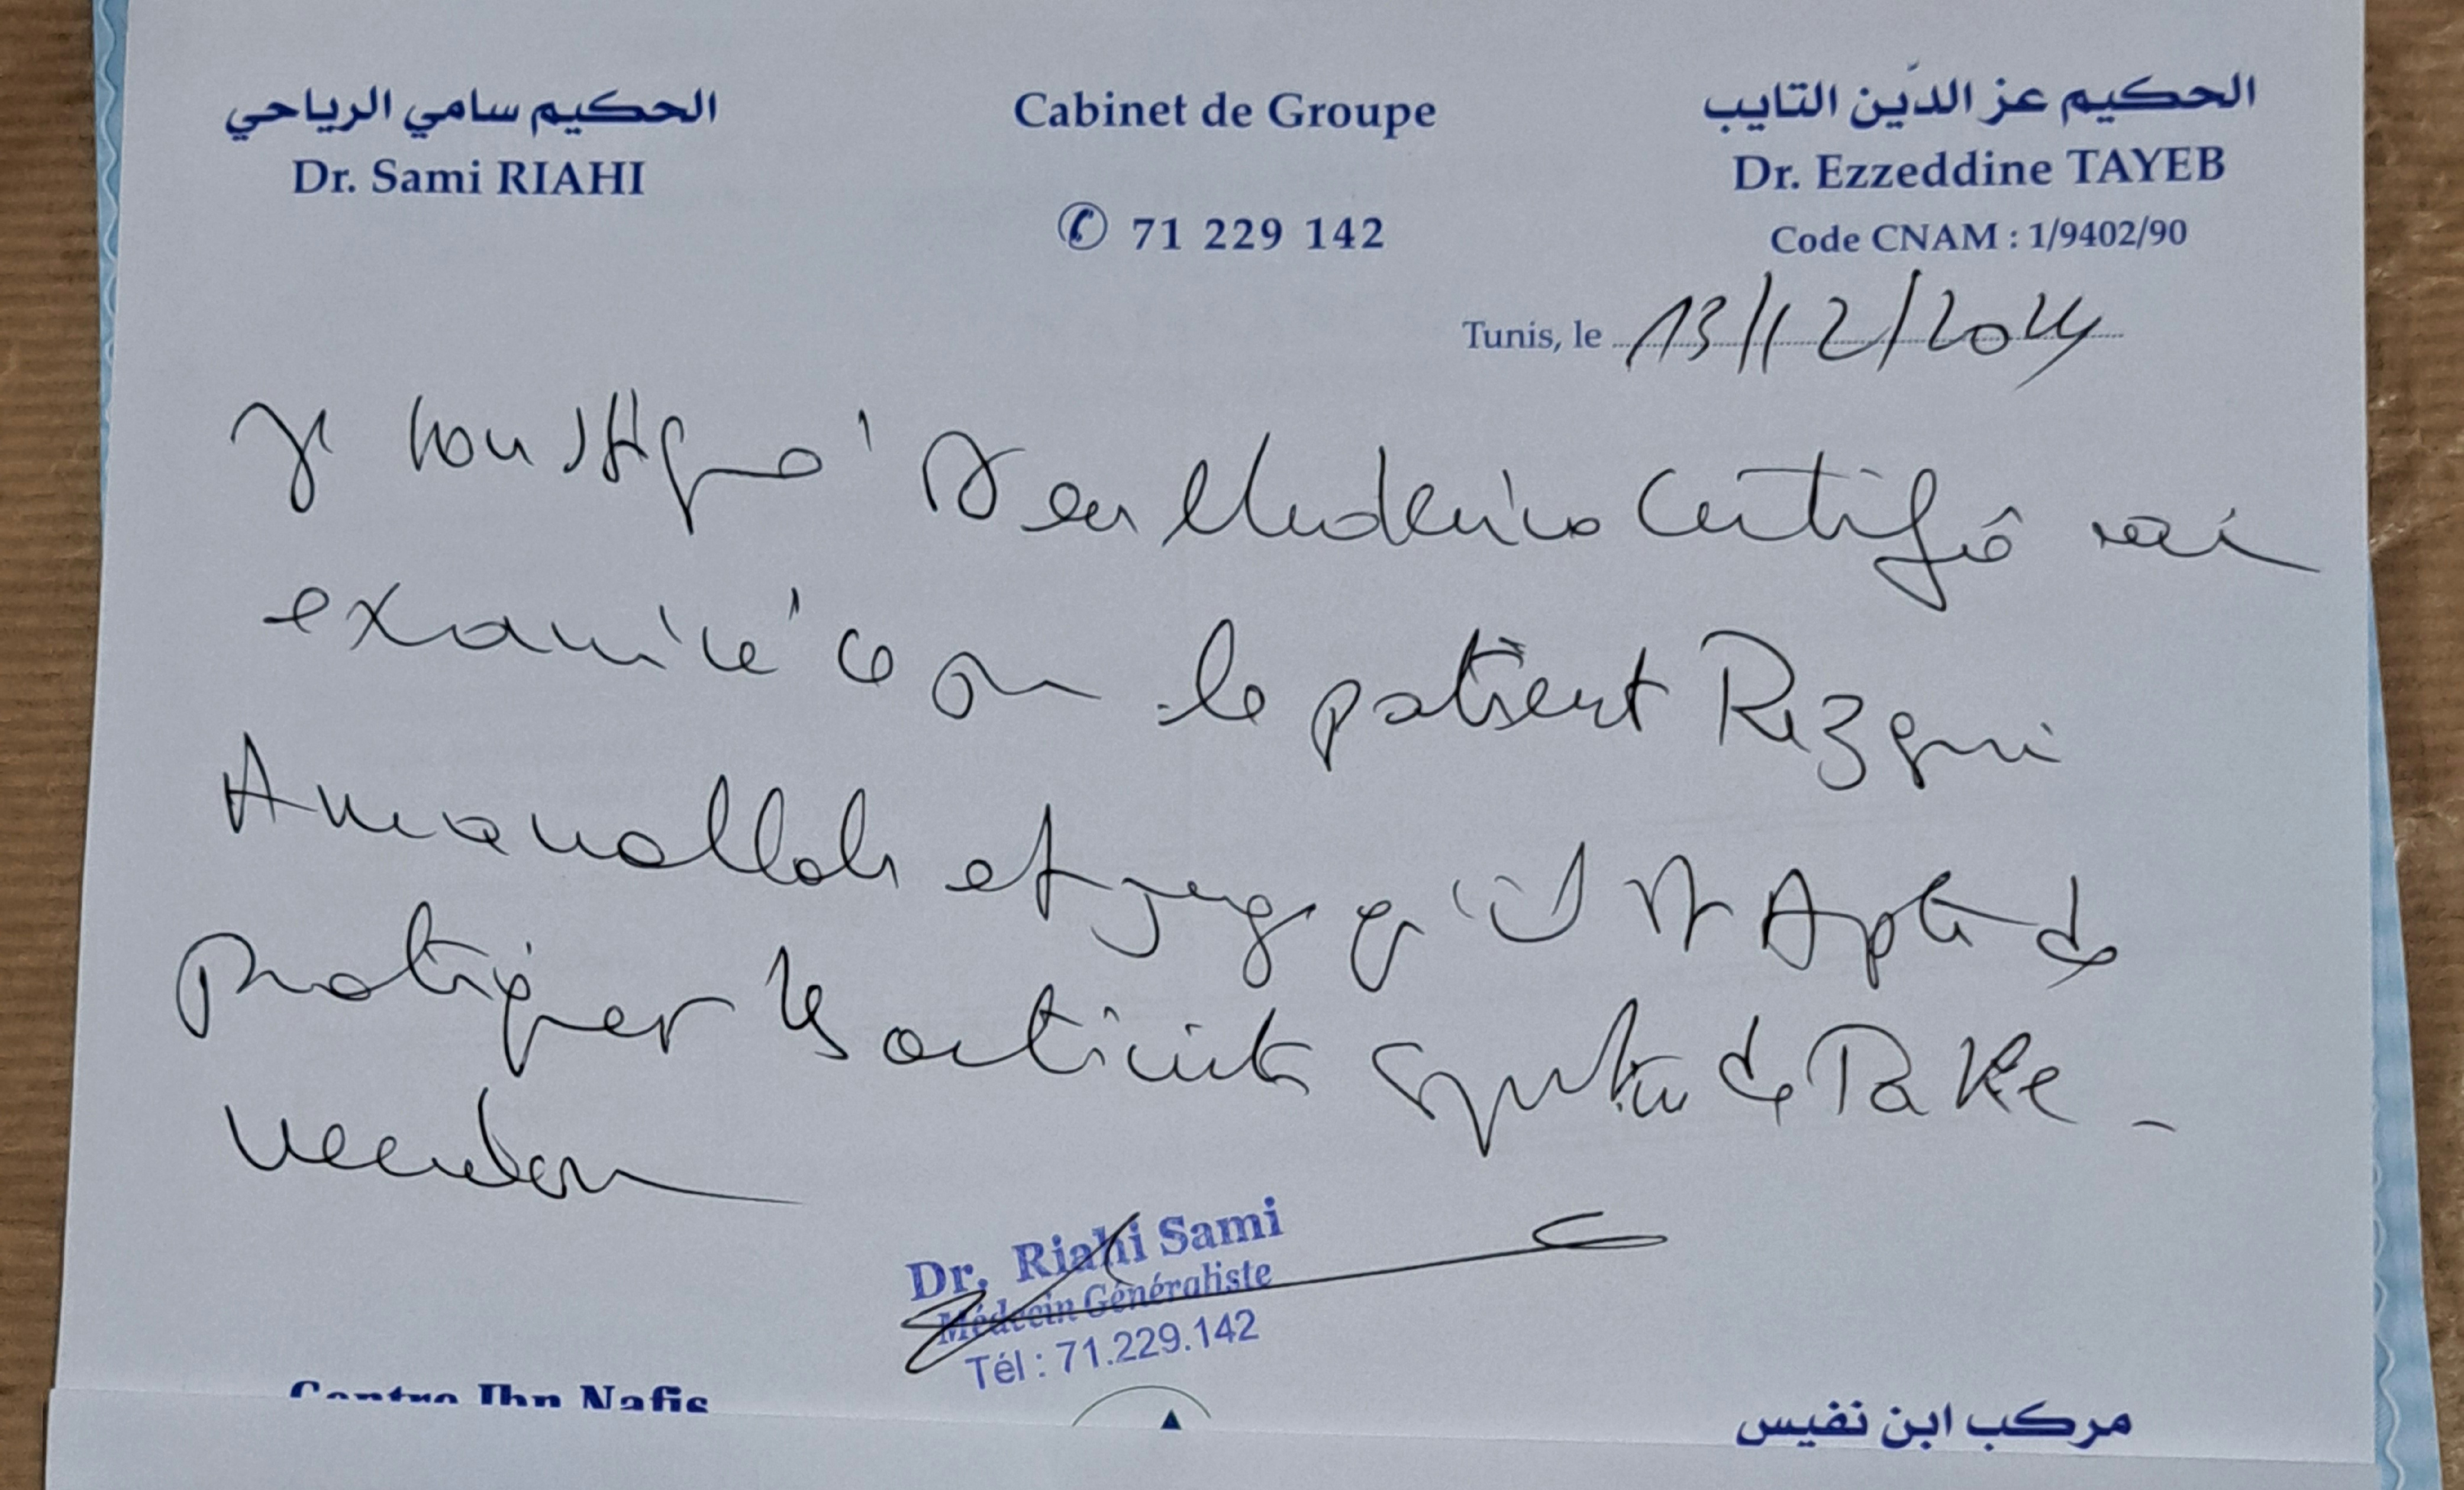 الحكيم سامي الرياحي
Dr. Sami RIAHI
Cabinet de Groupe
✆ 71 229 142
الحكيم عز الدّين التايب
Dr. Ezzeddine TAYEB
Code CNAM : 1/9402/90
Tunis, le 13/12/2024
Je soussigné Dr en Médecine Certifie
examiné ce jour le patient Rezgui
Amanallah et juge qu'il est Apte de
pratiquer les activités sportives de Take
Dr. Riahi Sami
Médecin Généraliste
Tél : 71.229.142
Centre Ibn Nafis
مركب ابن نفيس